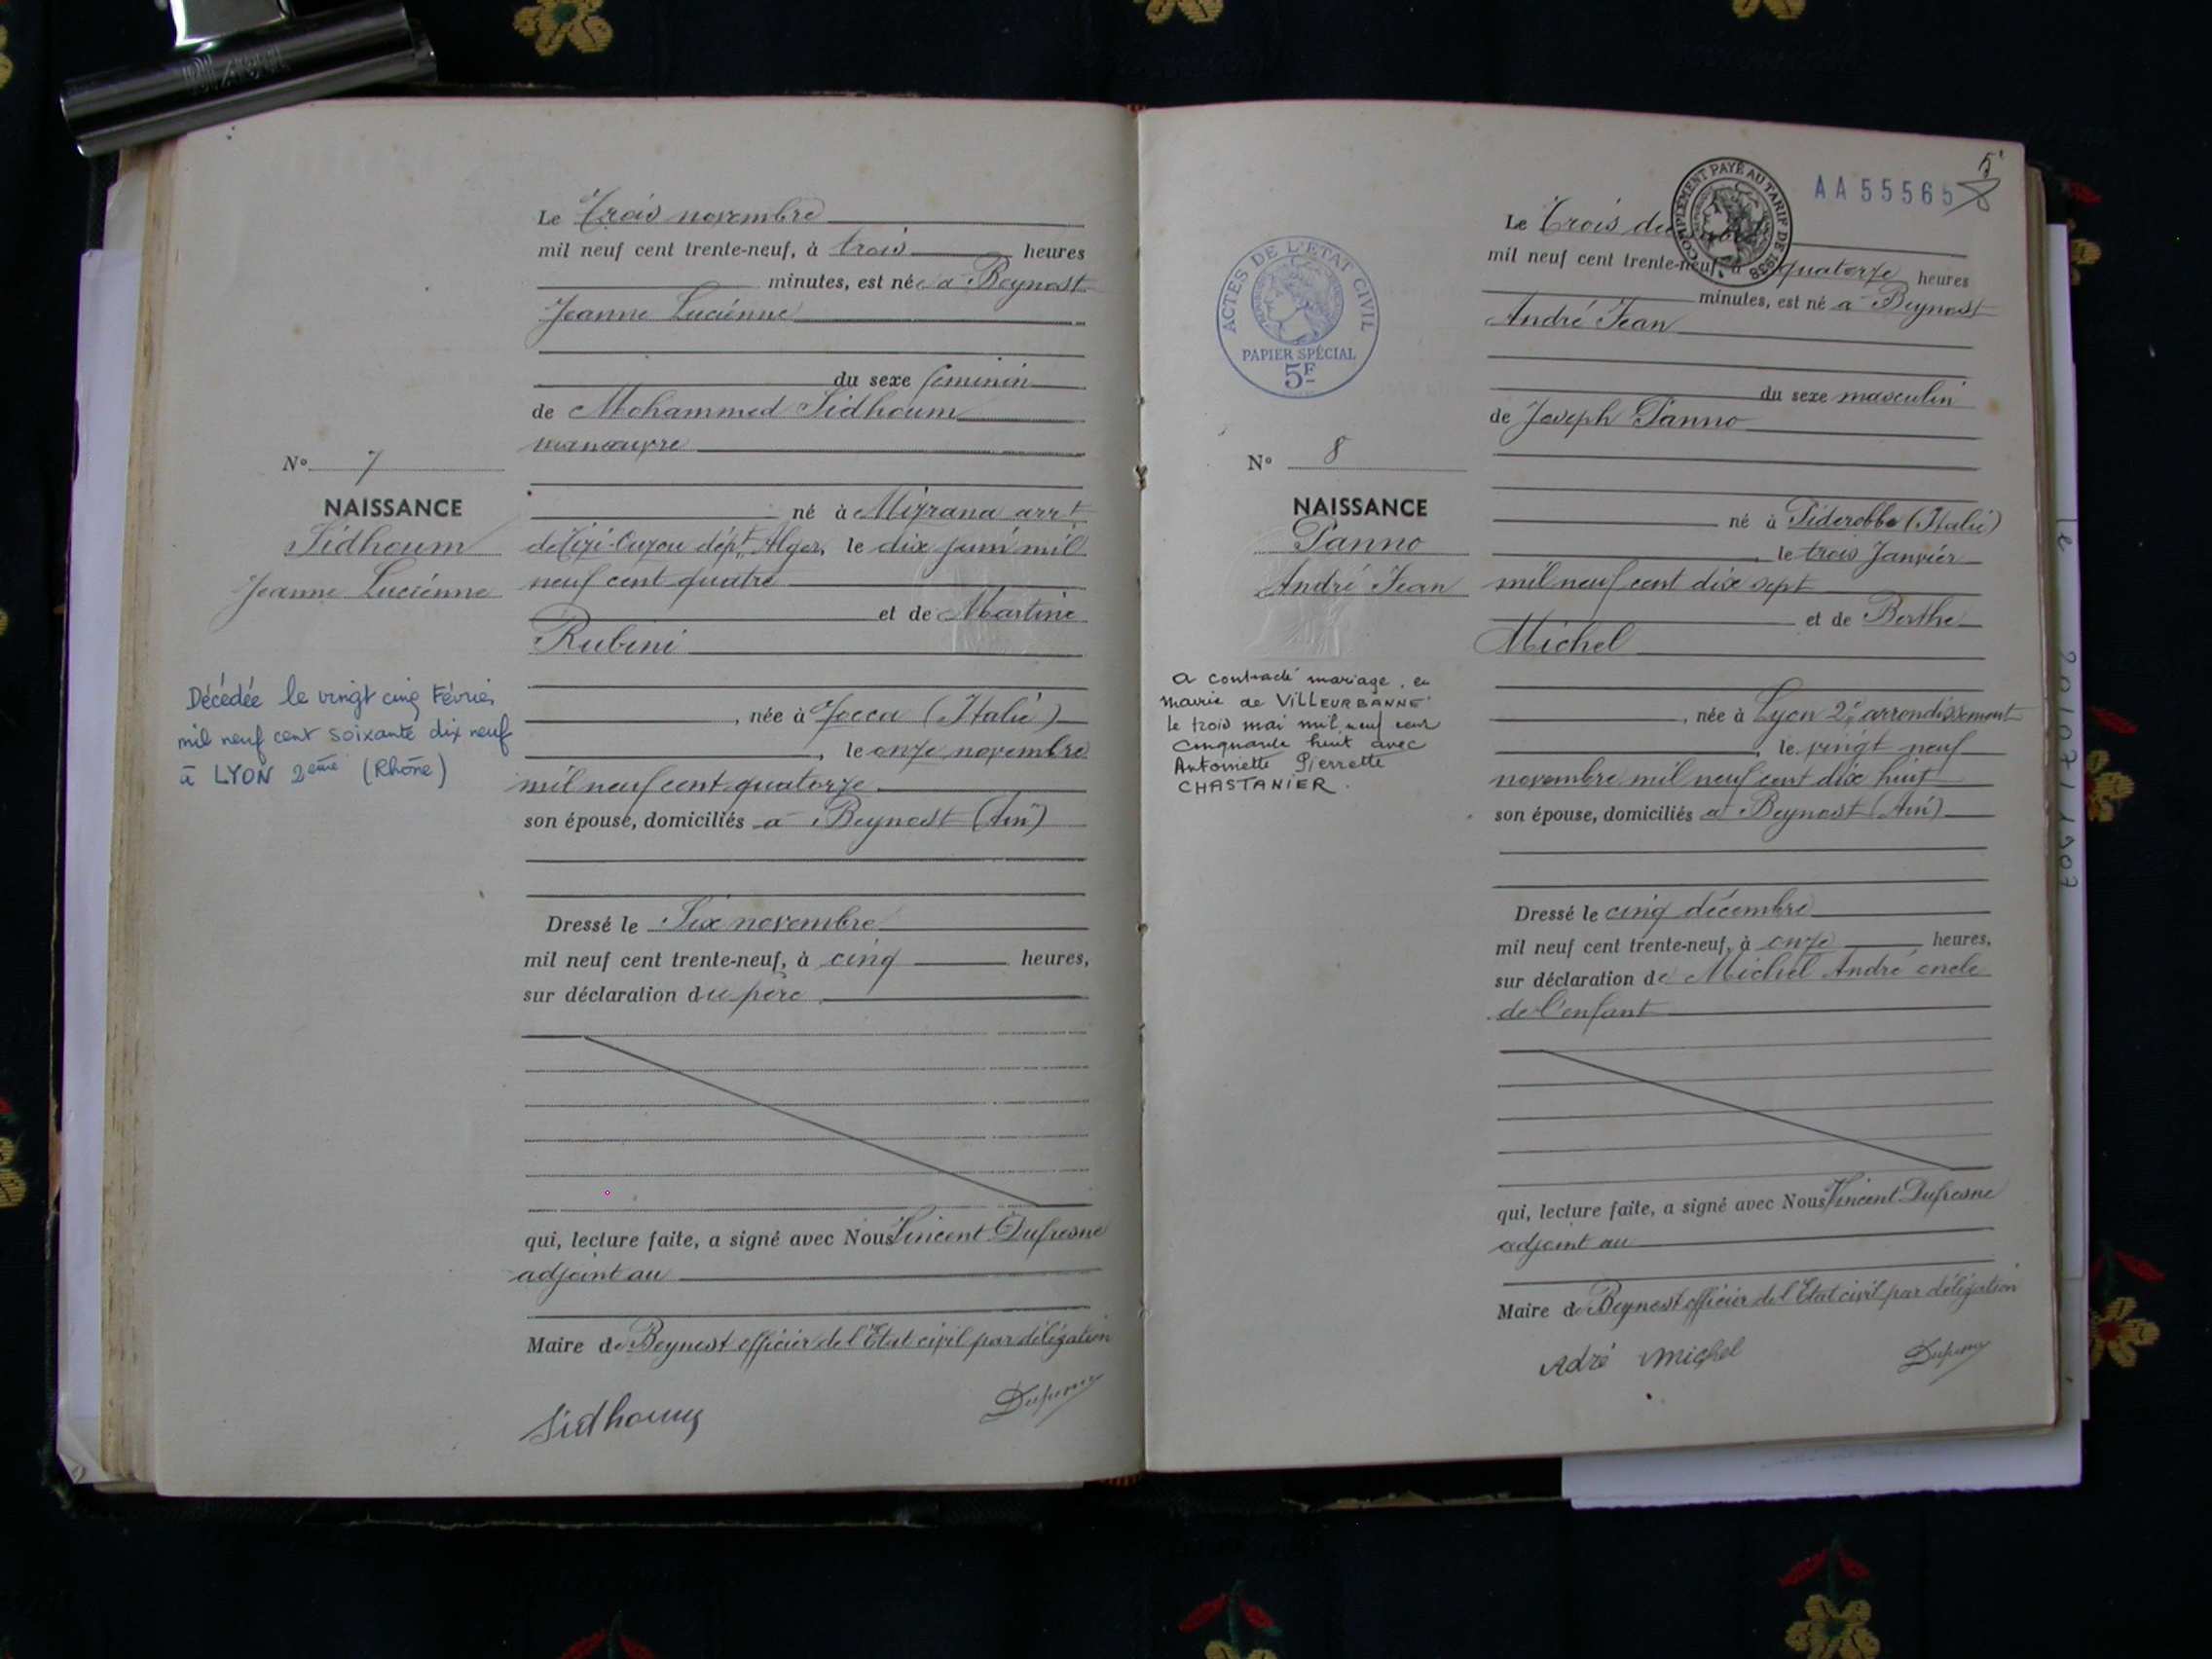 Le Trois novembre
mil neuf cent trente-neuf, à trois heures
minutes, est née à Beynost
Jeanne Lucienne
du sexe féminin
de Mohammed Sidhoum
manœuvre
N° 7
NAISSANCE
Sidhoum
Jeanne Lucienne
né à Mizrana arrt
de Tizi-Ouzou dépt Alger, le dix juin mil
neuf cent quatre
et de Martine
Rubini
Décédée le vingt cinq Février
mil neuf cent soixante dix neuf
à LYON 2ème (Rhône)
, née à (Italie)
, le onze novembre
mil neuf cent quatorze
son épouse, domiciliés à Beynost (Ain)
Dressé le Six novembre
mil neuf cent trente-neuf, à cinq heures,
sur déclaration du père
qui, lecture faite, a signé avec Nous Vincent Dufresne
adjoint au
Maire de Beynost officier de l'Etat civil par délégation
Sidhoum
AA 55565
5
8
COMPLÉMENT PAYÉ AU TARIF DE 1938
ACTES DE L'ÉTAT CIVIL
PAPIER SPÉCIAL
5F
Le Trois
mil neuf cent trente-neuf, à quatorze heures
minutes, est né à Beynost
André Jean
du sexe masculin
de Joseph Panno
N° 8
NAISSANCE
Panno
André Jean
né à (Italie)
le trois Janvier
mil neuf cent dix sept
et de Berthe
Michel
a contracté mariage, en
mairie de VILLEURBANNE
le trois mai mil neuf cent
cinquante huit avec
Antoinette Pierrette
CHASTANIER.
, née à Lyon 2e arrondissement
, le vingt neuf
novembre mil neuf cent dix huit
son épouse, domiciliés à Beynost (Ain)
Dressé le cinq décembre
mil neuf cent trente-neuf, à onze heures,
sur déclaration de Michel André oncle
de l'enfant
qui, lecture faite, a signé avec Nous Vincent Dufresne
adjoint au
Maire de Beynost officier de l'Etat civil par délégation
Adré Michel